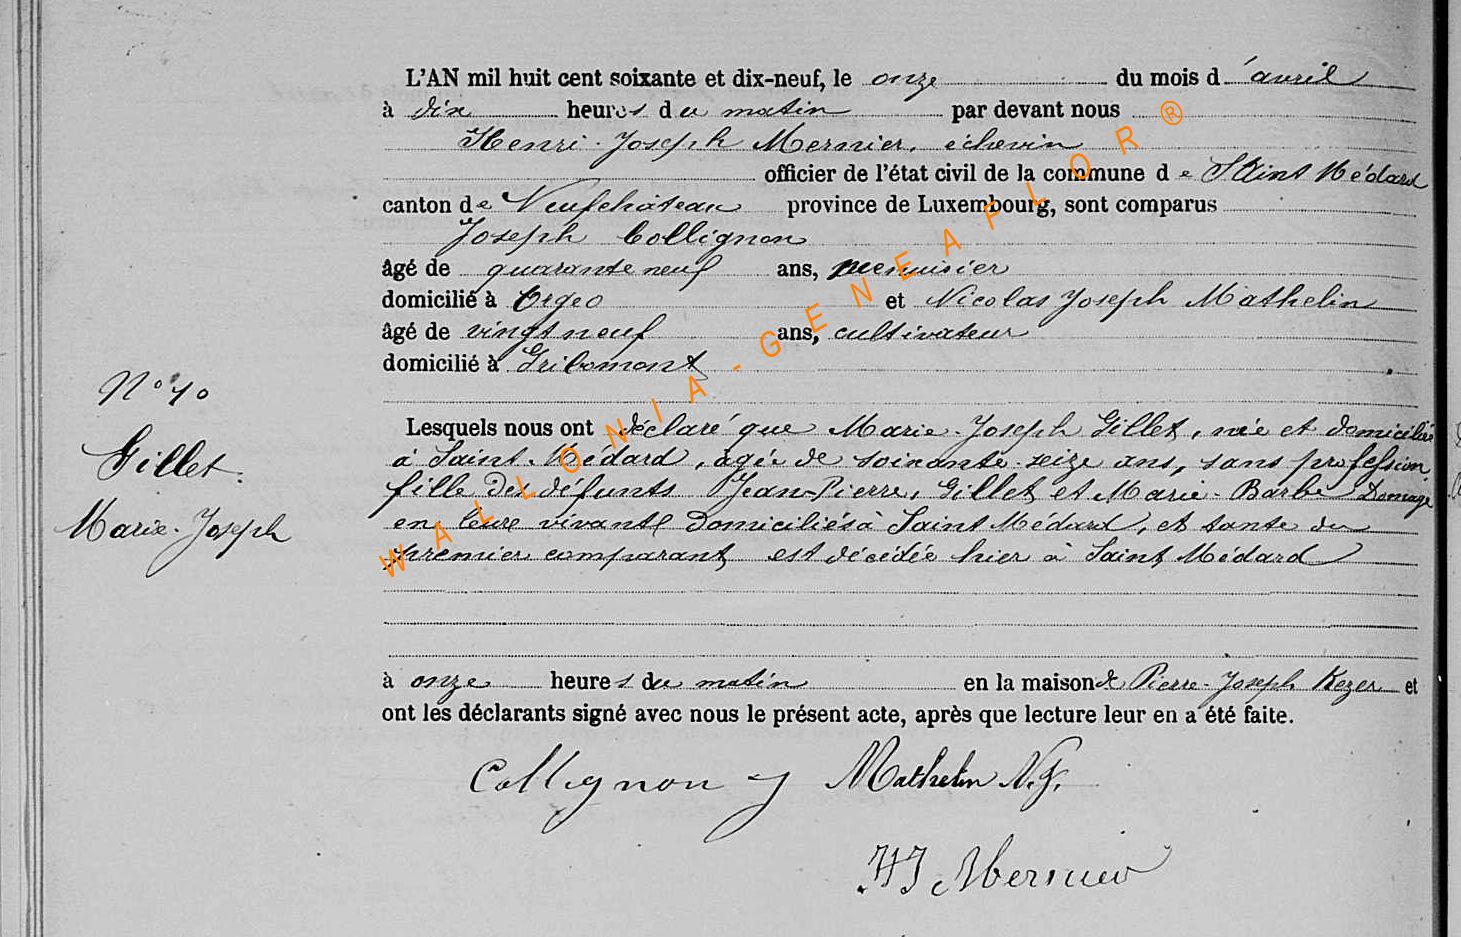 L'AN mil huit cent soixante et dix-neuf, le onze du mois d'avril
à dix heures du matin par devant nous
Henri-Joseph Mernier, échevin
officier de l'état civil de la commune de Saint Médard
canton de Neufchâteau province de Luxembourg, sont comparus
Joseph Collignon
âgé de quarante neuf ans, menuisier
domicilié à Orgeo et Nicolas Joseph Mathelin
âgé de vingt neuf ans, cultivateur
domicilié à Gribomont
N° 10
Gillet.
Marie-Joseph
Lesquels nous ont déclaré que Marie-Joseph Gillet, née et domiciliée
à Saint-Médard, agée de soixante-seize ans, sans profession
fille des défunts Jean-Pierre, Gillet et Marie-Barbe
en leur vivant domiciliés à Saint Médard, et tante du
premier comparant est décédée hier à Saint Médard
à onze heures du matin en la maison de Pierre-Joseph Kezer et
ont les déclarants signé avec nous le présent acte, après que lecture leur en a été faite.
Collignon J Mathelin N.J.
HJ Mernier
WALLONIA-GENEAFLOR®